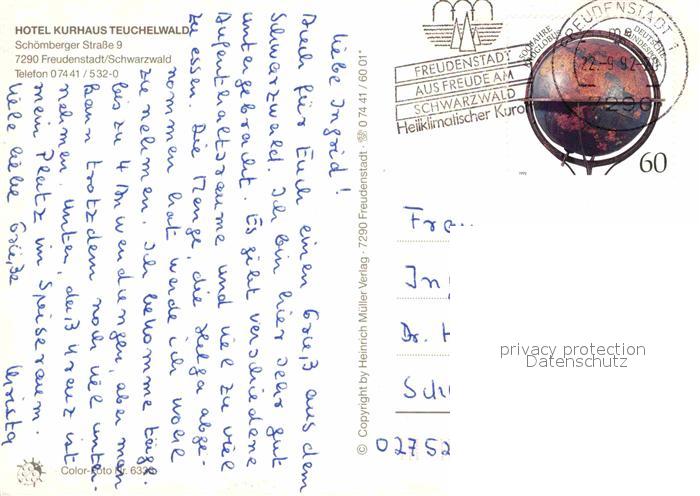 HOTEL KURHAUS TEUCHELWALD
Schömberger Straße 9
7290 Freudenstadt/Schwarzwald
Telefon 0 74 41 / 5 32-0
Liebe Ingrid!
Auch für Euch einen Gruß aus dem
Schwarzwald. Ich bin hier sehr gut
untergebracht. Es gibt verschiedene
Aufenthaltsräume und viel zu viel
zu essen. Die Menge, die Helga abge-
nommen hat werde ich wohl
zunehmen. Ich bekomme tägl.
bis zu 4 Anwendungen, aber man
kann trotzdem noch viel unter-
nehmen. Unten, das Kreuz ist
mein Platz im Speiseraum.
Viele liebe Grüße
Christa
Color-Foto Nr. 632
© Copyright by Heinrich Müller Verlag · 7290 Freudenstadt · ☏ 0 74 41 / 60 01
FREUDENSTADT
AUS FREUDE AM
SCHWARZWALD
Heilklimatischer Kuro
FREUDENSTADT 1
22.-9.92
7290
500 JAHRE
ERDGLOBUS
DEUTSCHE
BUNDESPOST
60
1992
Fra
In
Dr. H
Sch
02752
privacy protection
Datenschutz